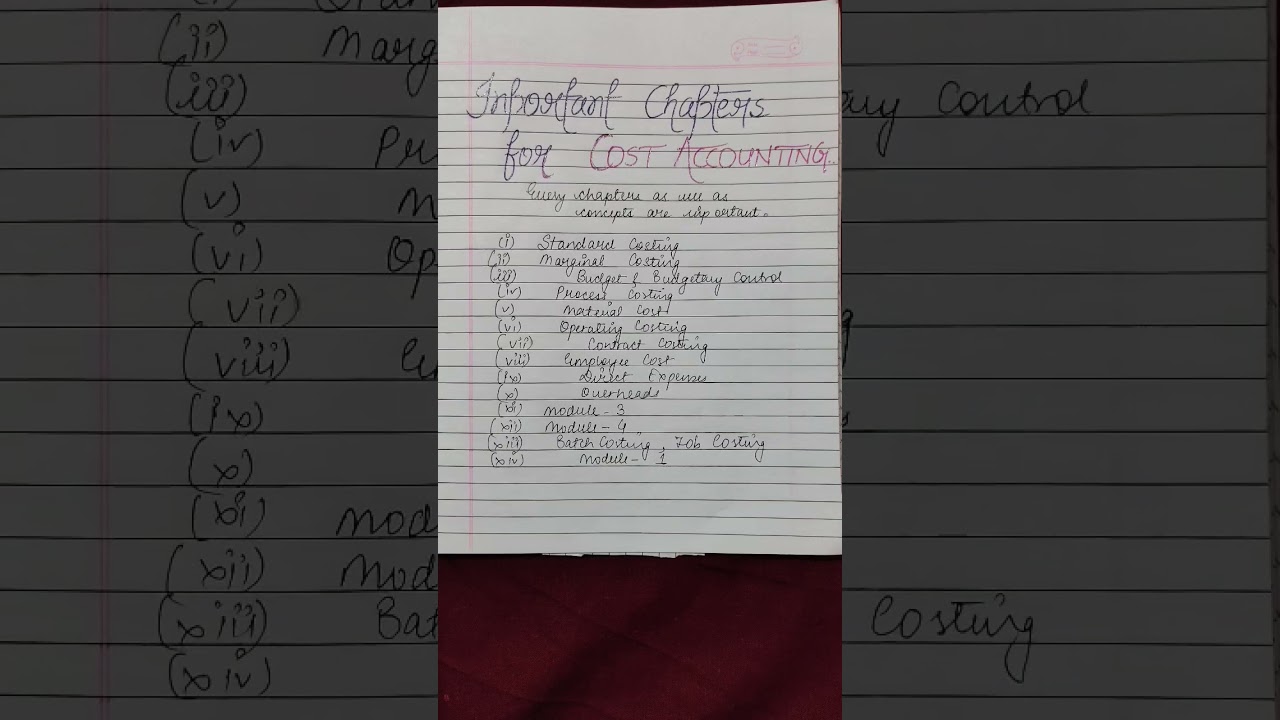 Important Chapters
for COST ACCOUNTING..
Every chapters as well as
concepts are important.
(i) Standard Costing
(ii) Marginal Costing
(iii) Budget & Budgetary Control
(iv) Process Costing
(v) Material Cost
(vi) Operating Costing
(vii) Contract Costing
(viii) Employee Cost
(ix) Direct Expenses
(x) Overheads
(xi) Module - 3
(xii) Module - 4
(xiii) Batch Costing, Job Costing
(xiv) Module - 1